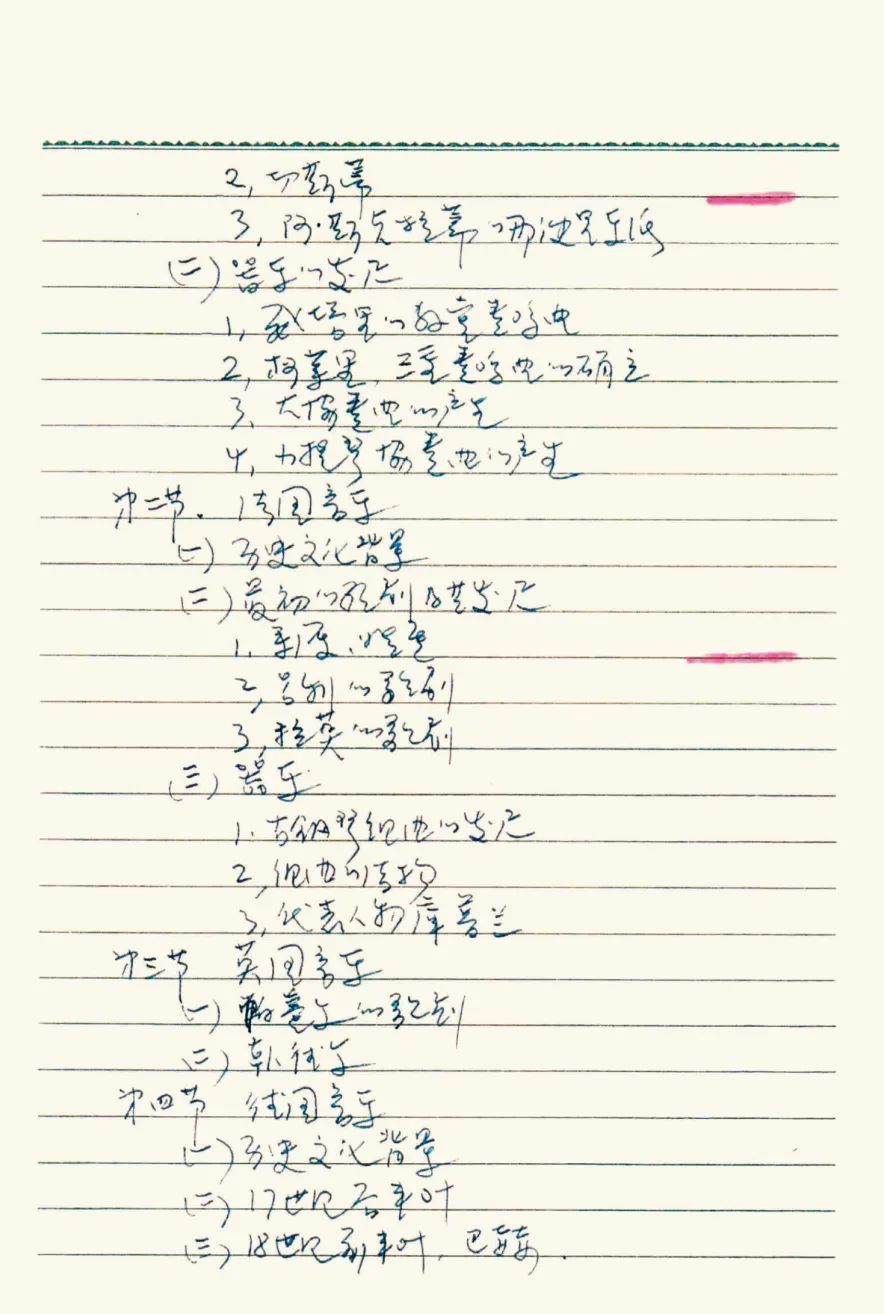 2, 切斯蒂
3, 阿·斯卡拉蒂的那波里乐派
(二) 器乐的发展
1, 威塔里的教堂奏鸣曲
2, 柯莱里, 三重奏鸣曲的确立
3, 大协奏曲的产生
4, 小提琴协奏曲的产生
第二节. 法国音乐
(一) 历史文化背景
(二) 最初的歌剧及其发展
1.
2, 吕利的歌剧
3, 拉莫的歌剧
(三) 器乐
1. 古钢琴组曲的发展
2, 组曲的结构
3, 代表人物库普兰
第三节 英国音乐
(一) 的歌剧
(二) 亨德尔
第四节 德国音乐
(一) 历史文化背景
(二) 17世纪后半叶
(三) 18世纪前半叶, 巴赫.